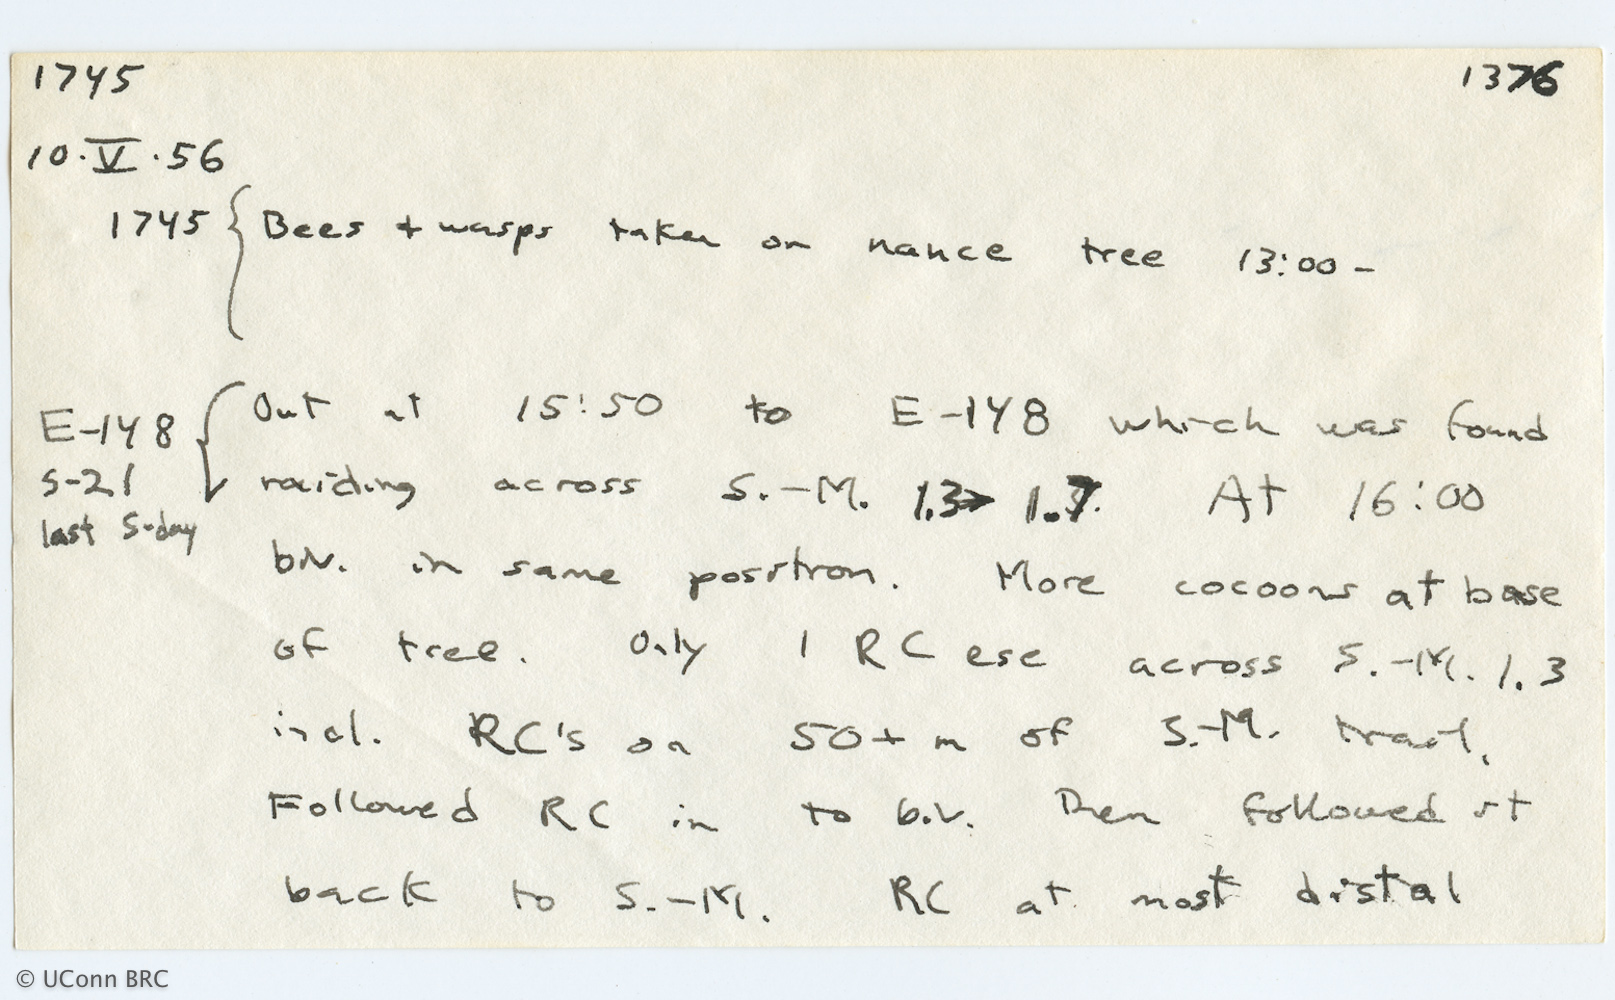 1745 1376
10·V·56
1745 { Bees + wasps taken on nance tree 13:00 -
E-148 { Out at 15:50 to E-148 which was found
S-21 raiding across S.-M. 1.3 → 1.7. At 16:00
last S-day
biv. in same position. More cocoons at base
of tree. Only 1 RC ese across S.-M. 1.3
incl. RC's on 50+ m of S.-M. trail.
Followed RC in to biv. Then followed it
back to S.-M. RC at most distal
© UConn BRC